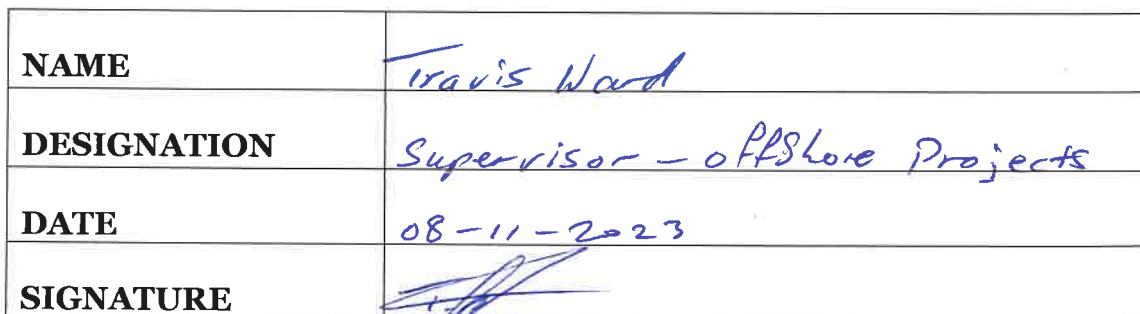 NAME Travis Ward
DESIGNATION Supervisor - offshore Projects
DATE 08-11-2023
SIGNATURE